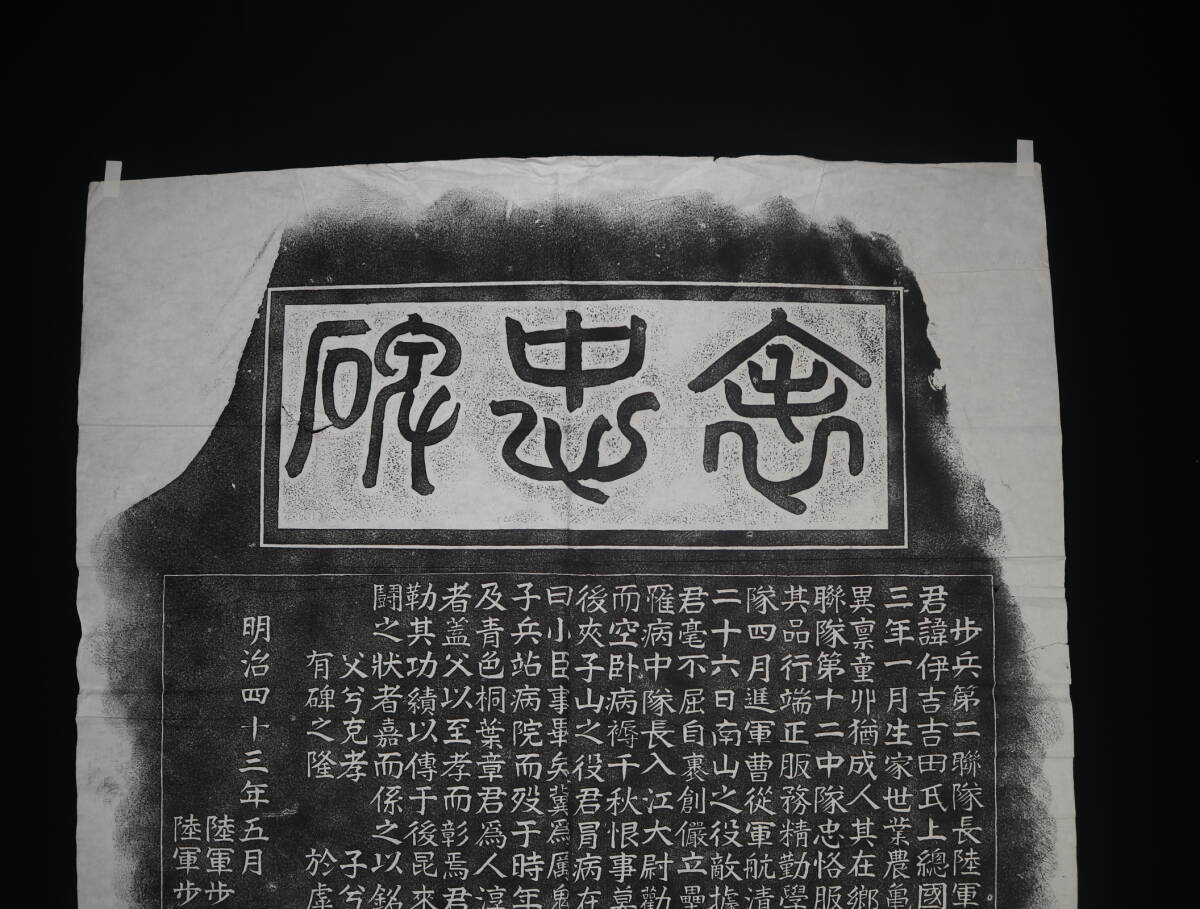 表忠碑
步兵第二聯隊長陸軍
君諱伊吉吉田氏上總國
三年一月生家世業農
異稟童丱猶成人其在鄉
聯隊第十二中隊忠恪服
其品行端正服務精勤學
隊四月進軍曹從軍航清
二十六日南山之役敵據
君毫不屈自裹創儼立壘
罹病中隊長入江大尉勸
而空卧病褥千秋恨事莫
後夾子山之役君冒病在
曰小臣事畢矣冀為厲鬼
子兵站病院而歿于時年
及青色桐葉章君爲人淳
者蓋父以至孝而彰焉君
勒其功績以傳于後昆來
鬪之狀者嘉而係之以銘
父兮克孝　子兮
有碑之隆　於
明治四十三年五月
陸軍步
陸軍步